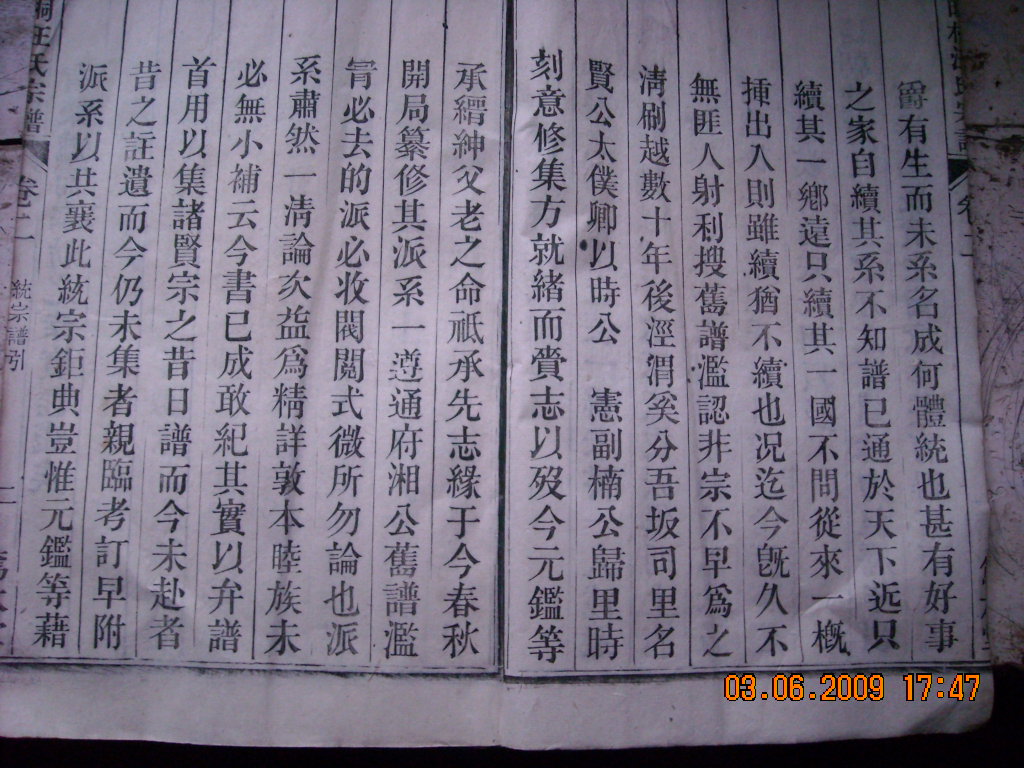 爵有生而未系名成何體統也甚有好事
之家自續其系不知譜已通於天下近只
續其一鄉遠只續其一國不問從來一概
挿出入則雖續猶不續也况迄今旣久不
無匪人射利搜舊譜濫認非宗不早爲之
淸刷越數十年後涇渭奚分吾坂司里名
賢公太僕卿以時公 憲副楠公歸里時
刻意修集方就緒而賫志以歿今元鑑等
承縉紳父老之命祗承先志緣于今春秋
開局纂修其派系一遵通府湘公舊譜濫
冐必去的派必收閥閱式微所勿論也派
系肅然一淸論次益爲精詳敦本睦族未
必無小補云今書已成敢紀其實以弁譜
首用以集諸賢宗之昔日譜而今未赴者
昔之註遺而今仍未集者親臨考訂早附
派系以共襄此統宗鉅典豈惟元鑑等藉
桐汪氏宗譜
卷二
統宗譜引
二
03.06.2009 17:47